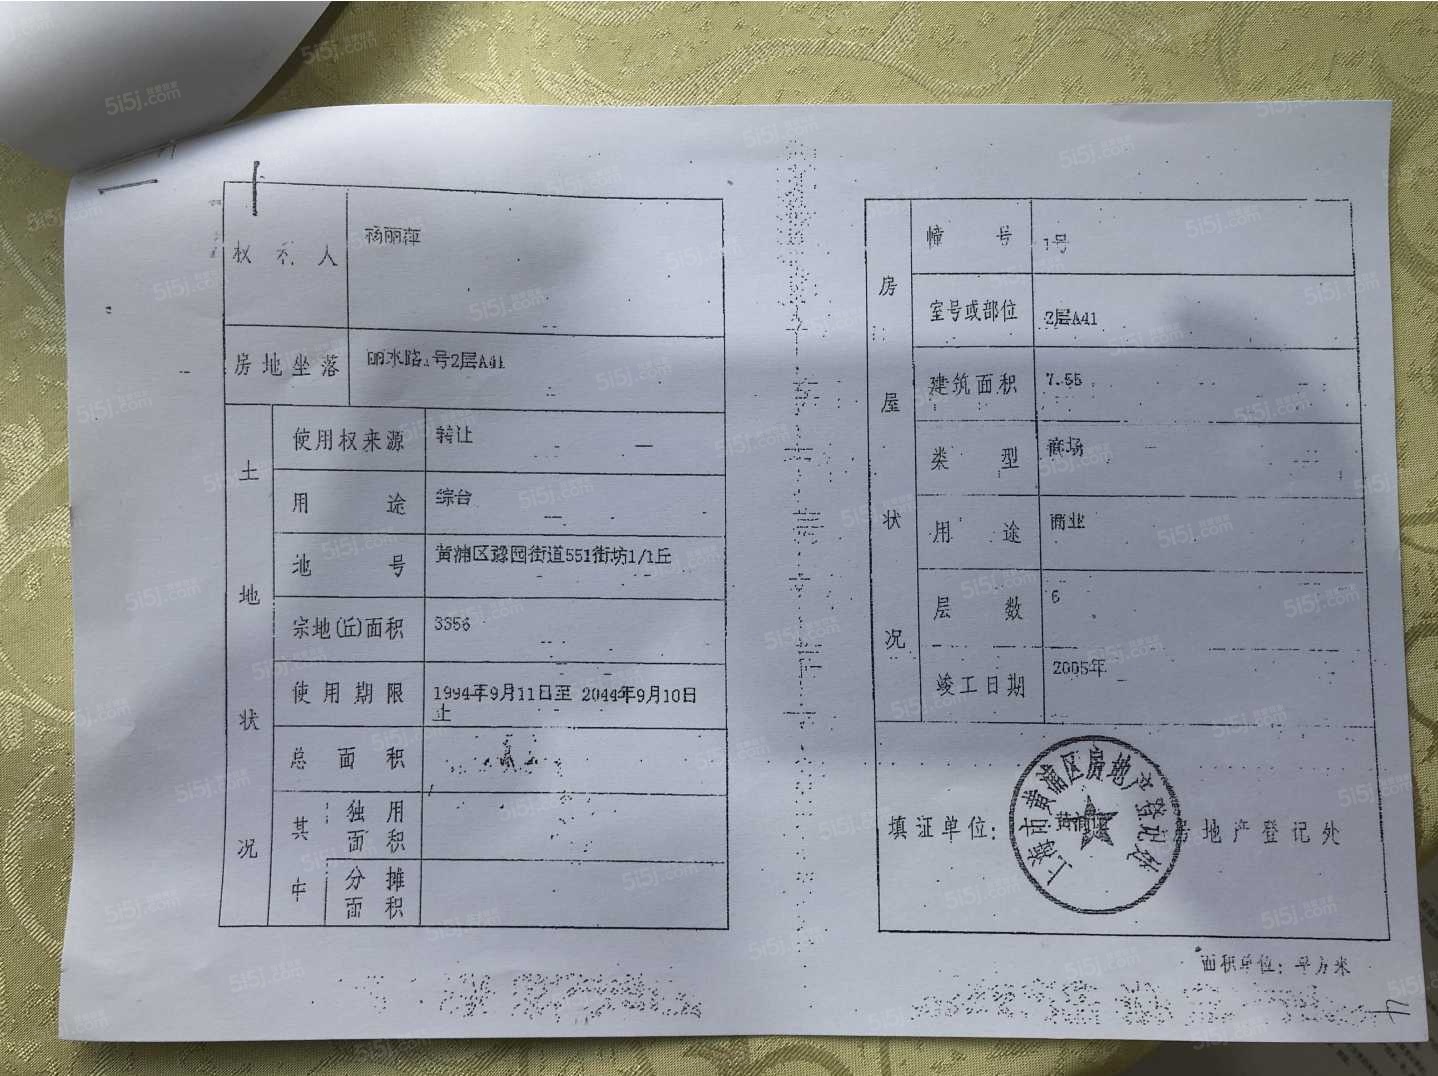 权利人
杨丽萍
房地坐落
丽水路1号2层A41
土地状况
使用权来源
转让
用途
综合
地号
黄浦区豫园街道551街坊1/1丘
宗地(丘)面积
3356
使用期限
1994年9月11日至 2044年9月10日
止
总面积
其中
独用面积
分摊面积
房屋状况
幢号
1号
室号或部位
2层A41
建筑面积
7.55
类型
商场
用途
商业
层数
6
竣工日期
2005年
填证单位:
黄浦区
房地产登记处
上海市黄浦区房地产登记处
面积单位: 平方米
5i5j.com